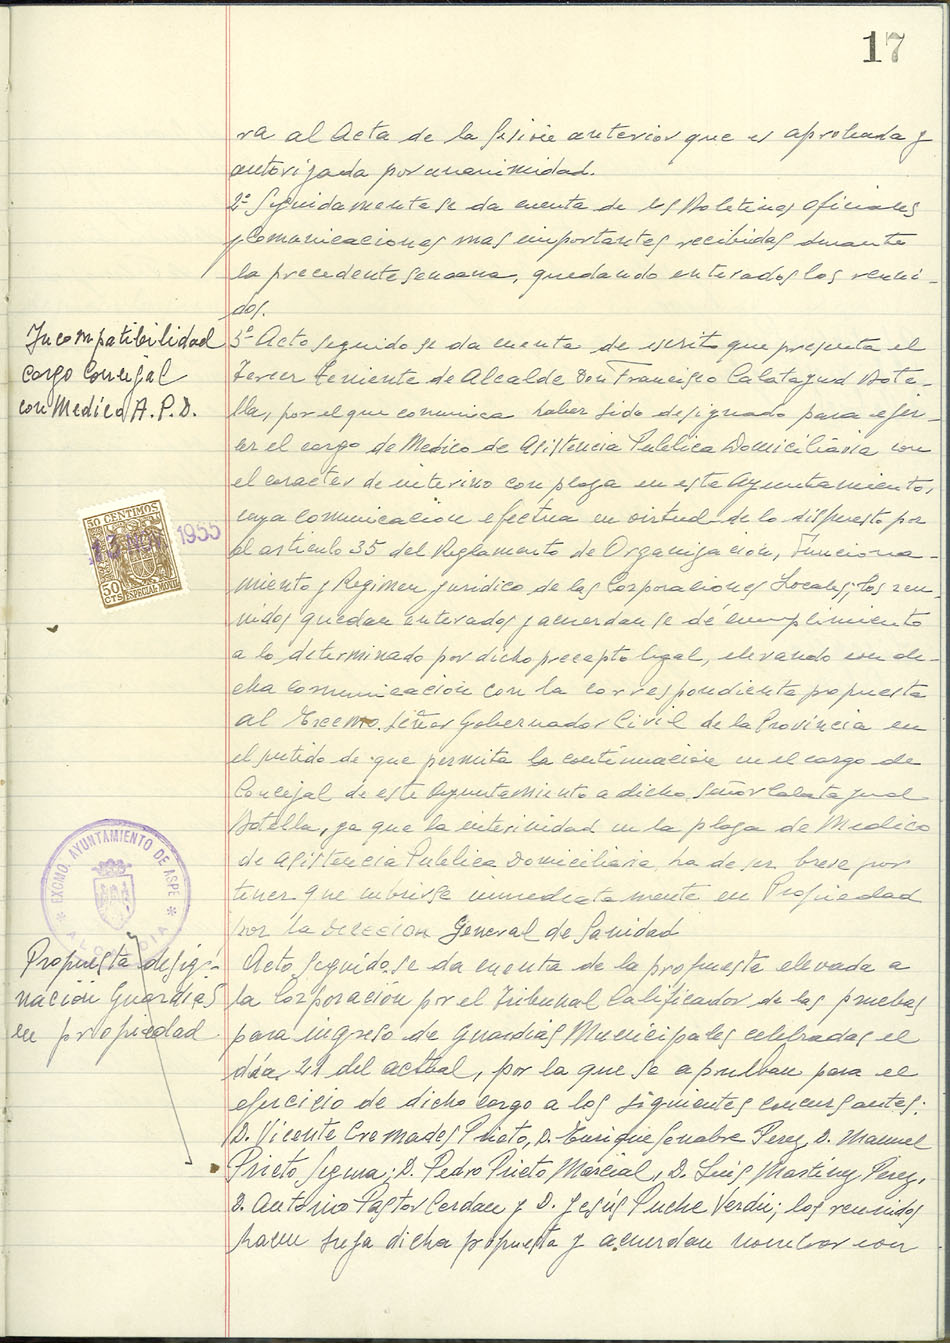 17
ra al Acta de la sesión anterior que es aprobada y
autorizada por unanimidad.
2º Seguidamente se da cuenta de los Boletines oficiales
y Comunicaciones mas importantes recibidas durante
la precedente semana, quedando enterados los reuni-
dos.
Incompatibilidad
cargo Concejal
con Medico A.P.D.
3º Acto seguido se da cuenta de escrito que presenta el
Tercer Teniente de Alcalde Don Francisco Calatayud Bote-
lla, por el que comunica haber sido designado para ejer-
cer el cargo de Medico de Asistencia Publica Domiciliaria con
el caracter de interino con plaza en este Ayuntamiento,
cuya comunicacion efectua en virtud de lo dispuesto por
el articulo 35 del Reglamento de Organizacion, Funciona-
miento y Regimen juridico de las Corporaciones Locales; los reu-
nidos quedan enterados y acuerdan se dé cumplimiento
a lo determinado por dicho precepto legal, elevando con di-
cha comunicación con la correspondiente propuesta
al Excmo. Señor Gobernador Civil de la Provincia en
el sentido de que permita la continuacion en el cargo de
Concejal de este Ayuntamiento a dicho Señor Calatayud
Botella, ya que la interinidad en la plaza de Medico
de Asistencia Publica Domiciliaria ha de ser breve por
tener que cubrirse inmediatamente en Propiedad
por la General de Sanidad
50 CENTIMOS
13 1955
50
CTS ESPECIAL MOVIL
EXCMO. AYUNTAMIENTO DE ASPE
* ALCALDIA *
Propuesta desig-
nación Guardias
en propiedad
Acto seguido se da cuenta de la propuesta elevada a
la Corporación por el Tribunal Calificador de las pruebas
para ingreso de Guardias Municipales celebradas el
día 21 del actual, por la que se aprueban para el
ejercicio de dicho cargo a los siguientes concursantes:
D. Vicente Cremades Prieto, D. Enrique Senabre Perez, D. Manuel
Prieto Segura, D. Pedro Prieto Marcial, D. Luis Martinez Perez,
D. Antonio Pastor Cerdan y D. Jesús Puche Verdú; los reunidos
hacen suya dicha propuesta y acuerdan nombrar con